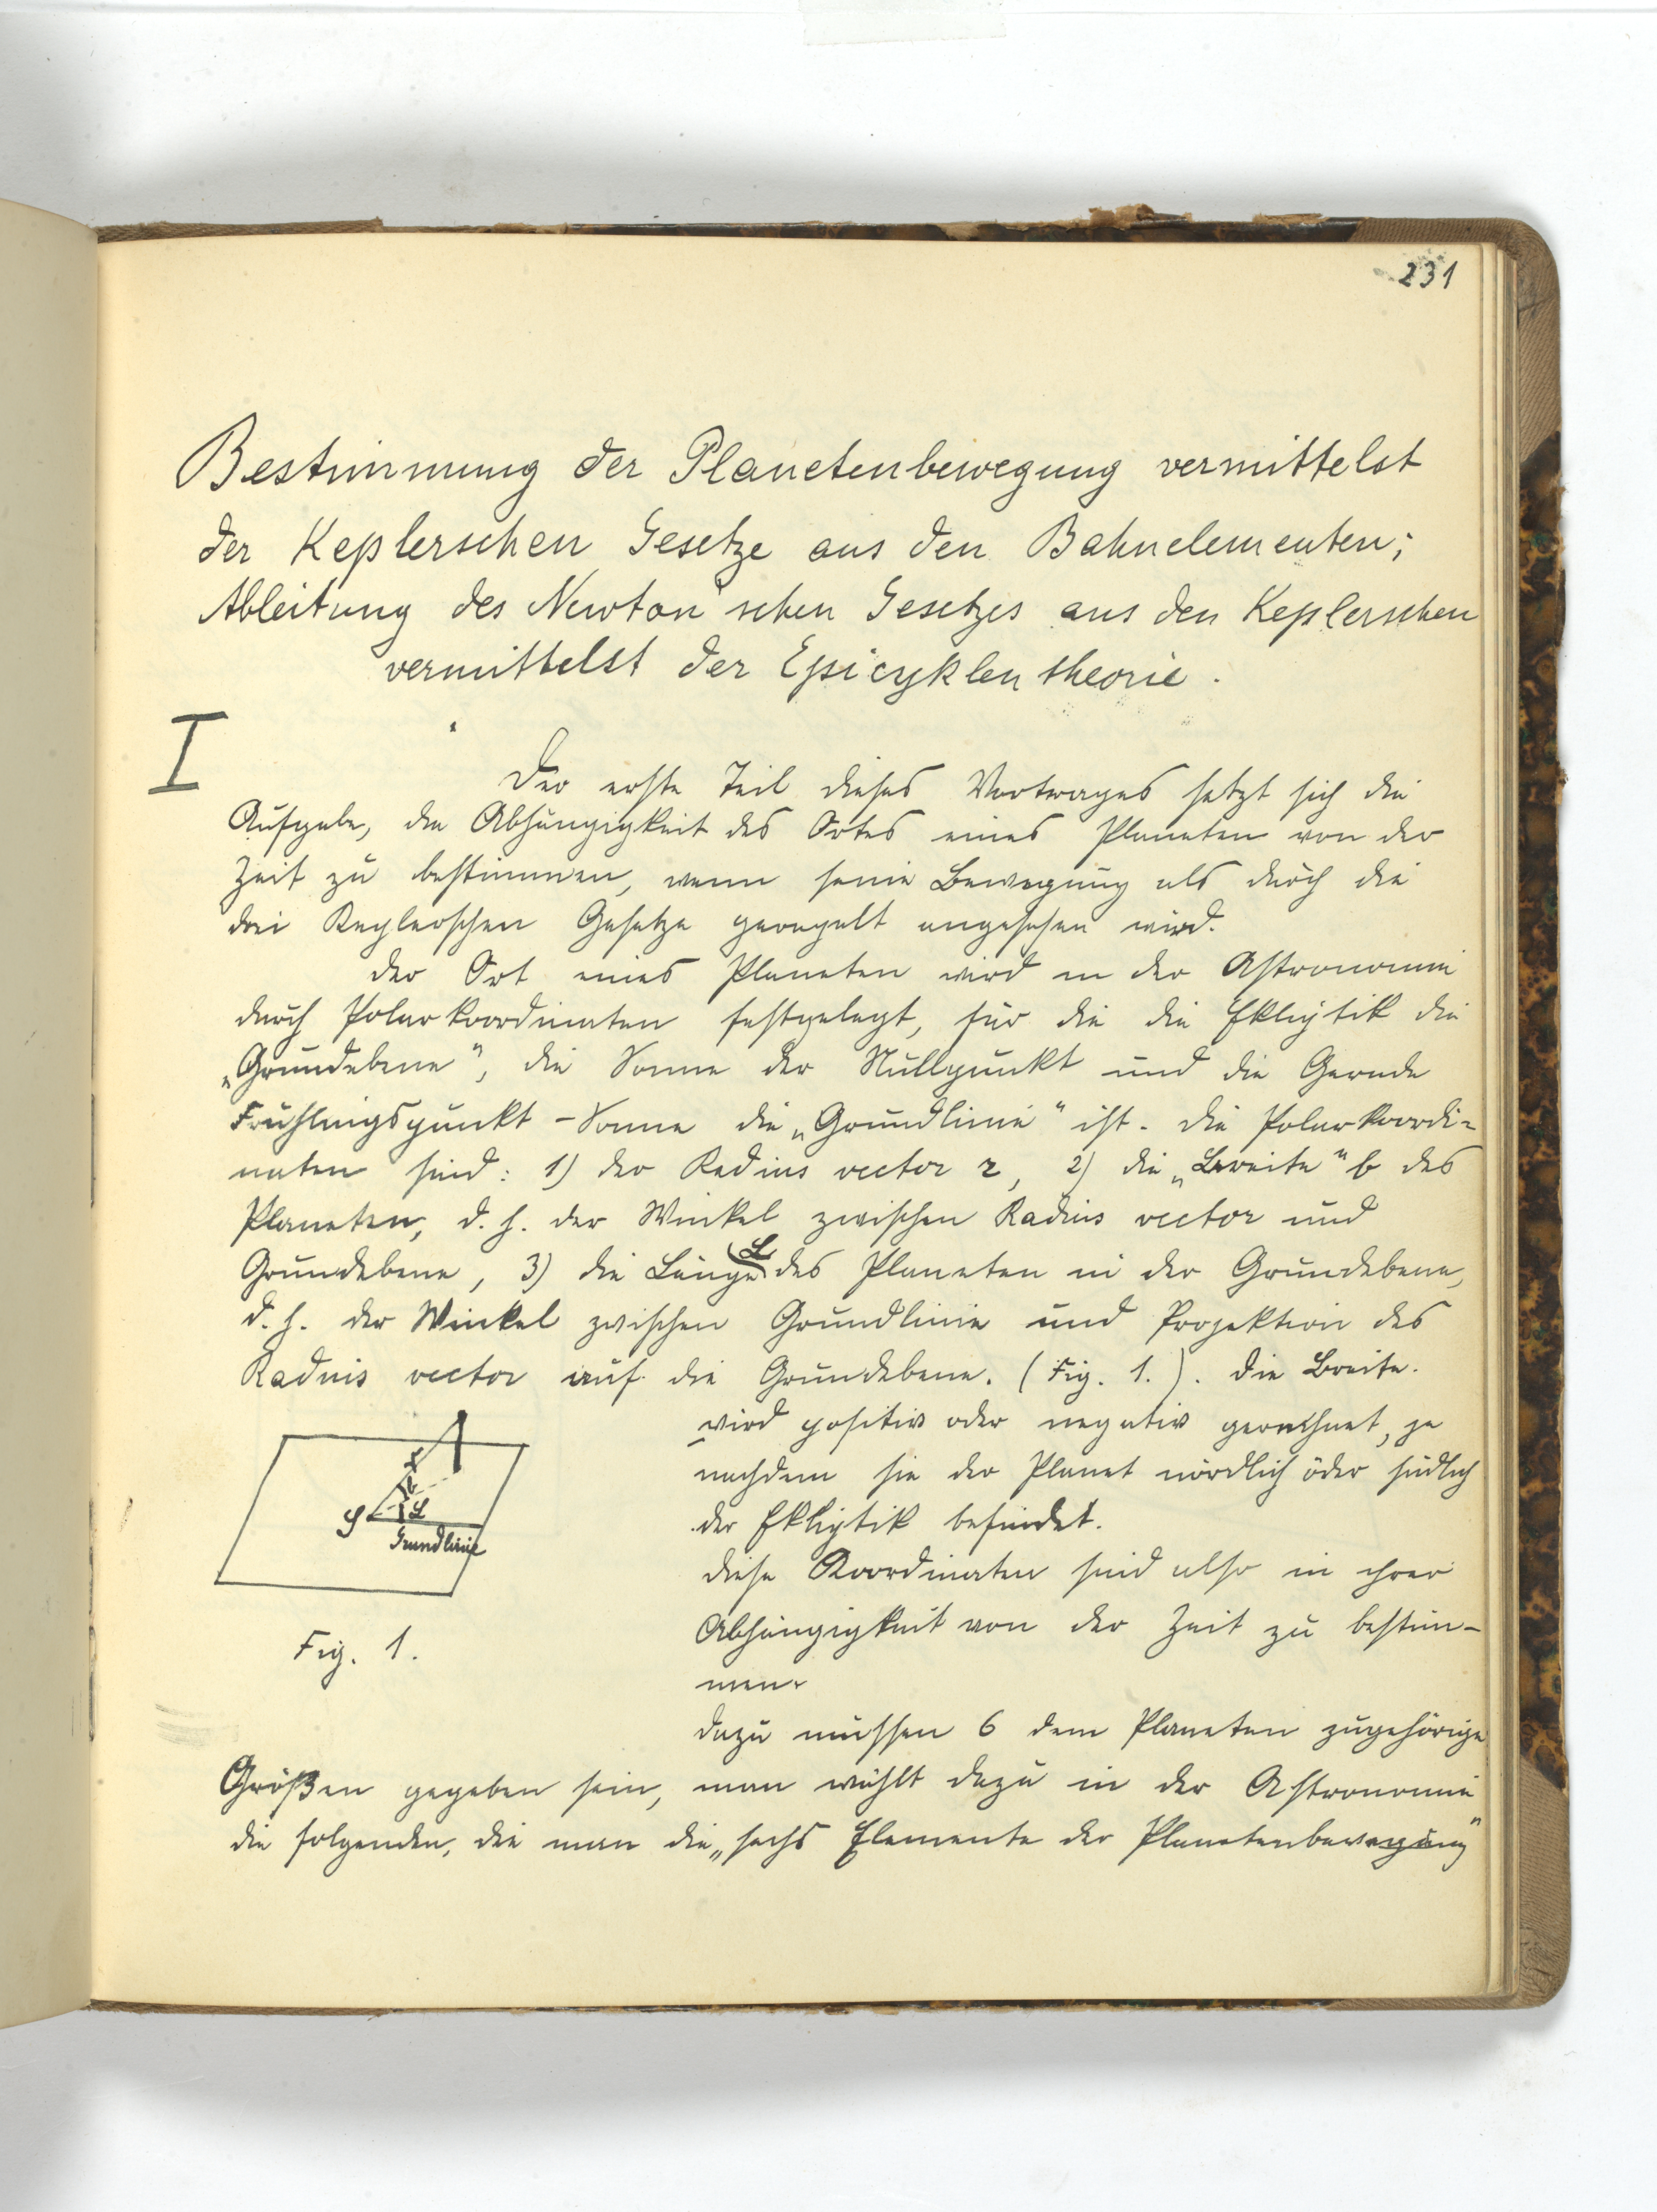 231
Bestimmung der Planetenbewegung vermittelst
der Keplerschen Gesetze aus den Bahnelementen;
Ableitung des Newton'schen Gesetzes aus den Keplerschen
vermittelst der Epicyklentheorie.
I
Der erste Teil dieses Vortrages setzt sich die
Aufgabe, die Abhängigkeit des Ortes eines Planeten von der
Zeit zu bestimmen, wenn seine Bewegung als durch die
drei Keplerschen Gesetze geregelt angesehen wird.
Der Ort eines Planeten wird in der Astronomie
durch Polarkoordinaten festgelegt, für die die Ekliptik die
„Grundebene", die Sonne der Nullpunkt und die Gerade
Frühlingspunkt - Sonne die „Grundlinie" ist. Die Polarkoordi-
naten sind: 1) der Radius vector r, 2) die „Breite" b des
Planeten, d. h. der Winkel zwischen Radius vector und
Grundebene, 3) die Länge L des Planeten in der Grundebene,
d. h. der Winkel zwischen Grundlinie und Projektion des
Radius vector auf die Grundebene. (Fig. 1.). Die Breite
wird positiv oder negativ gerechnet, je
nachdem sie der Planet nördlich oder südlich
der Ekliptik befindet.
Diese Koordinaten sind also in ihrer
Abhängigkeit von der Zeit zu bestim-
men.
r
b
L
Grundlinie
Fig. 1.
Dazu müssen 6 dem Planeten zugehörige
Größen gegeben sein, man wählt dazu in der Astronomie
die folgenden, die man die „sechs Elemente der Planetenbewegung"